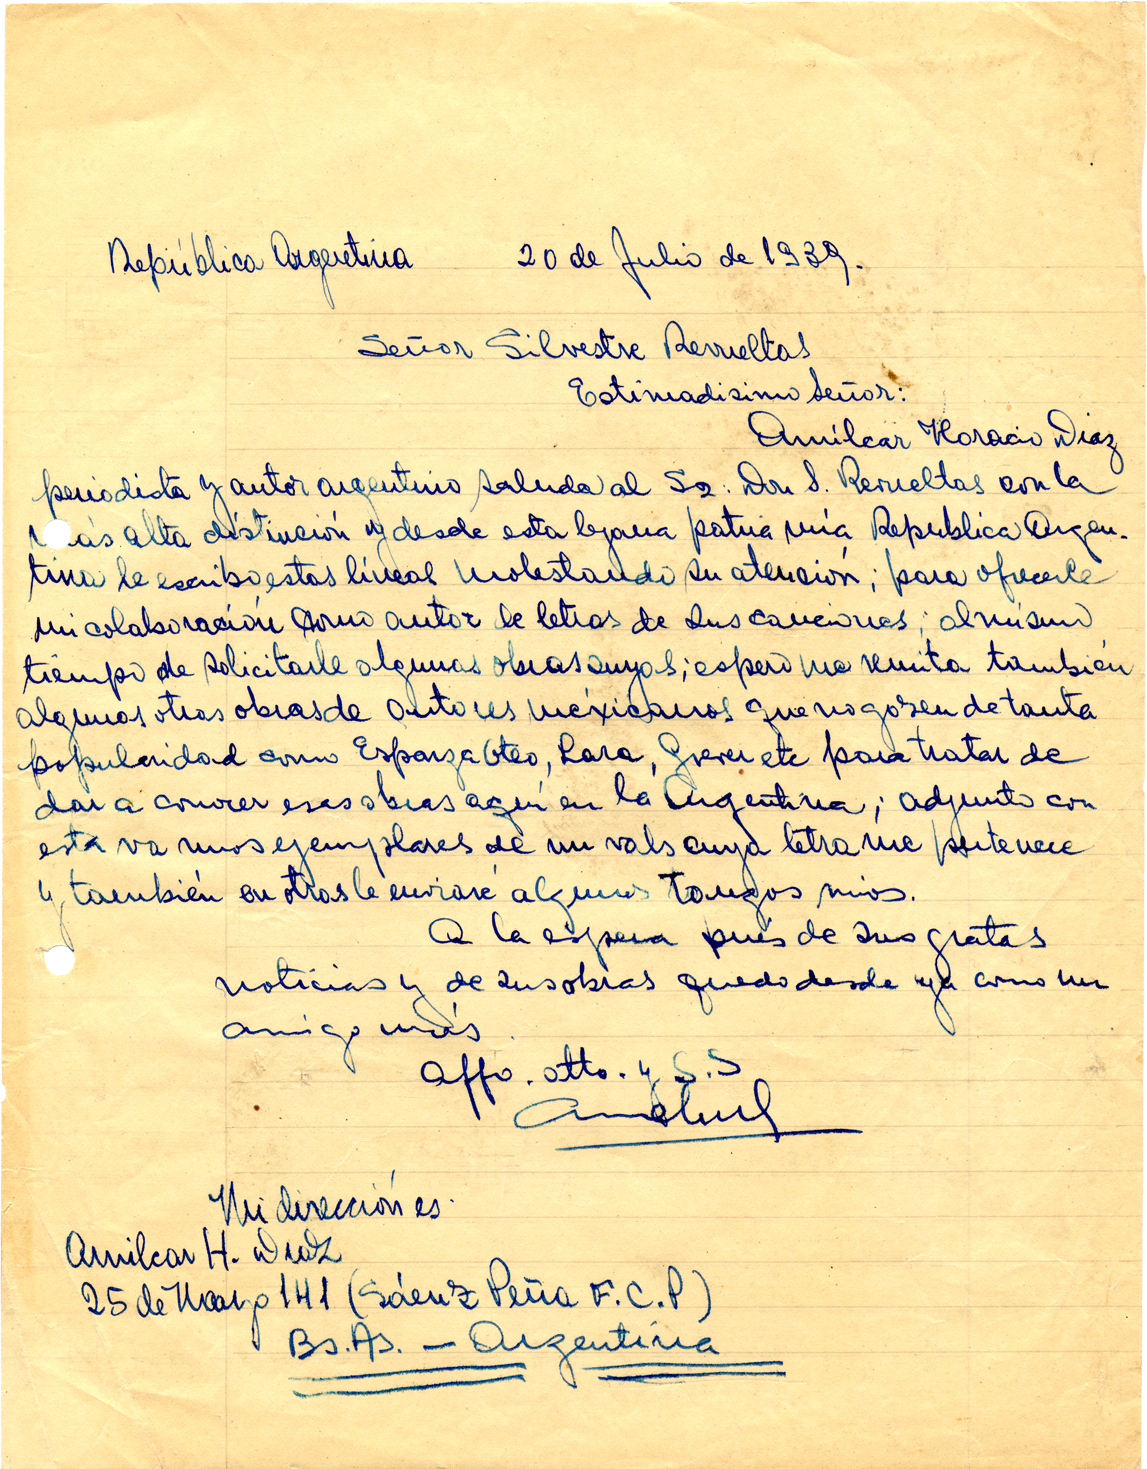 República Argentina 20 de Julio de 1939.
Señor Silvestre Revueltas
Estimadisimo Señor:
Amílcar Horacio Diaz
periodista y autor argentino saluda al Sr. Don S. Revueltas con la
más alta distinción y desde esta lejana patria mía Republica Argen-
tina le escribo estas líneas molestando su atención; para ofrecerle
mi colaboración como autor de letras de sus canciones; al mismo
tiempo de solicitarle algunas obras suyas; espero me remita también
algunas otras obras de autores méxicanos que no gozen de tanta
popularidad como Esparza Oteo, Lara, Grever etc para tratar de
dar a conocer esas obras aquí en la Argentina; adjunto con
esta va unos ejemplares de un vals cuya letra me pertenece
y también en otras le enviaré algunos Tangos mios.
A la espera pués de sus gratas
noticias y de sus obras quedo desde ya como un
amigo más
Affo. atto. y S.S
Mi dirección es.
Amilcar H. Diaz
25 de Mayo 141 (Sáenz Peña F.C.P)
Bs.As. — Argentina